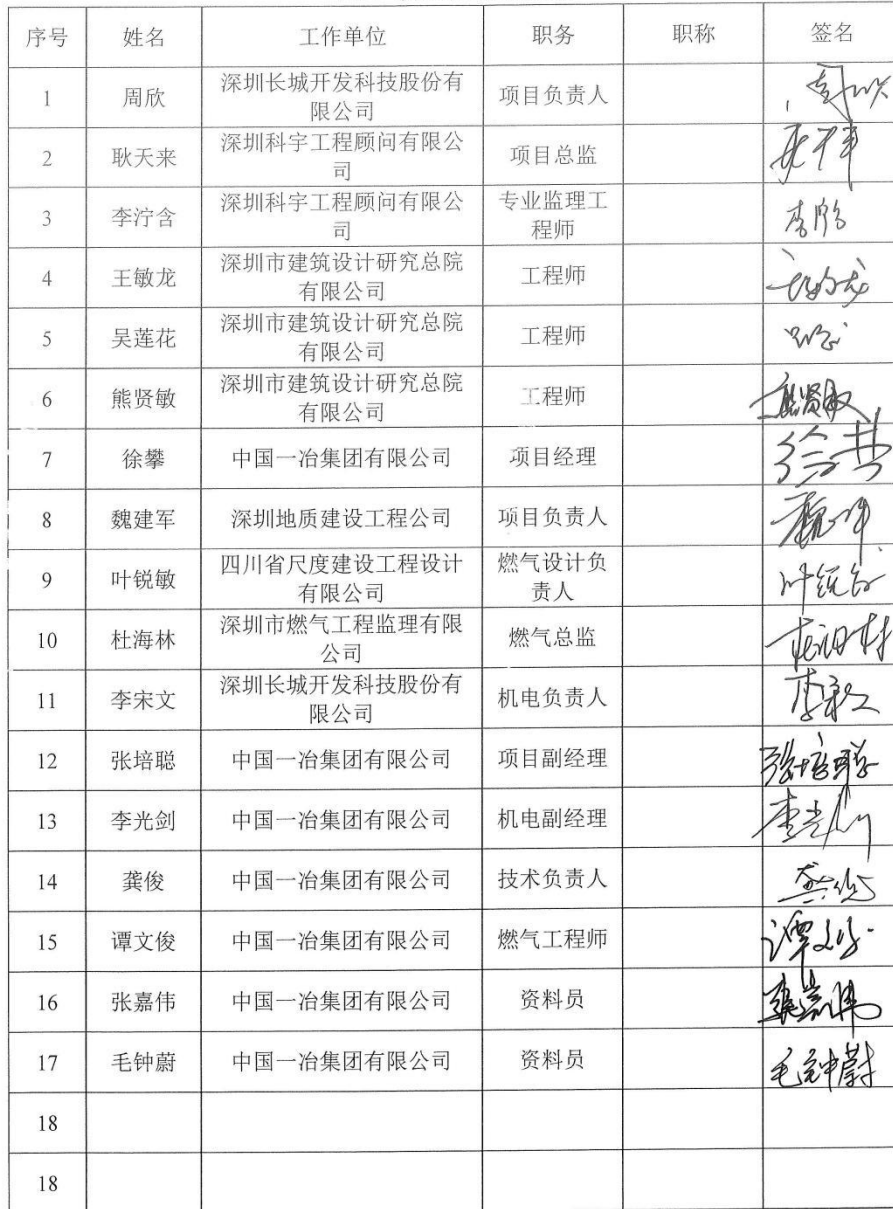 序号 姓名 工作单位 职务 职称 签名
1 周欣 深圳长城开发科技股份有 项目负责人
限公司
2 耿天来 深圳科宇工程顾问有限公 项目总监
司
3 李泞含 深圳科宇工程顾问有限公 专业监理工
司 程师
4 王敏龙 深圳市建筑设计研究总院 工程师
有限公司
5 吴莲花 深圳市建筑设计研究总院 工程师
有限公司
6 熊贤敏 深圳市建筑设计研究总院 工程师 熊贤敏
有限公司
7 徐攀 中国一冶集团有限公司 项目经理
8 魏建军 深圳地质建设工程公司 项目负责人
9 叶锐敏 四川省尺度建设工程设计 燃气设计负 叶锐敏
有限公司 责人
10 杜海林 深圳市燃气工程监理有限 燃气总监
公司
11 李宋文 深圳长城开发科技股份有 机电负责人
限公司
12 张培聪 中国一冶集团有限公司 项目副经理 张培聪
13 李光剑 中国一冶集团有限公司 机电副经理 李光剑
14 龚俊 中国一冶集团有限公司 技术负责人 龚俊
15 谭文俊 中国一冶集团有限公司 燃气工程师 谭文俊
16 张嘉伟 中国一冶集团有限公司 资料员 张嘉伟
17 毛钟蔚 中国一冶集团有限公司 资料员 毛钟蔚
18
18